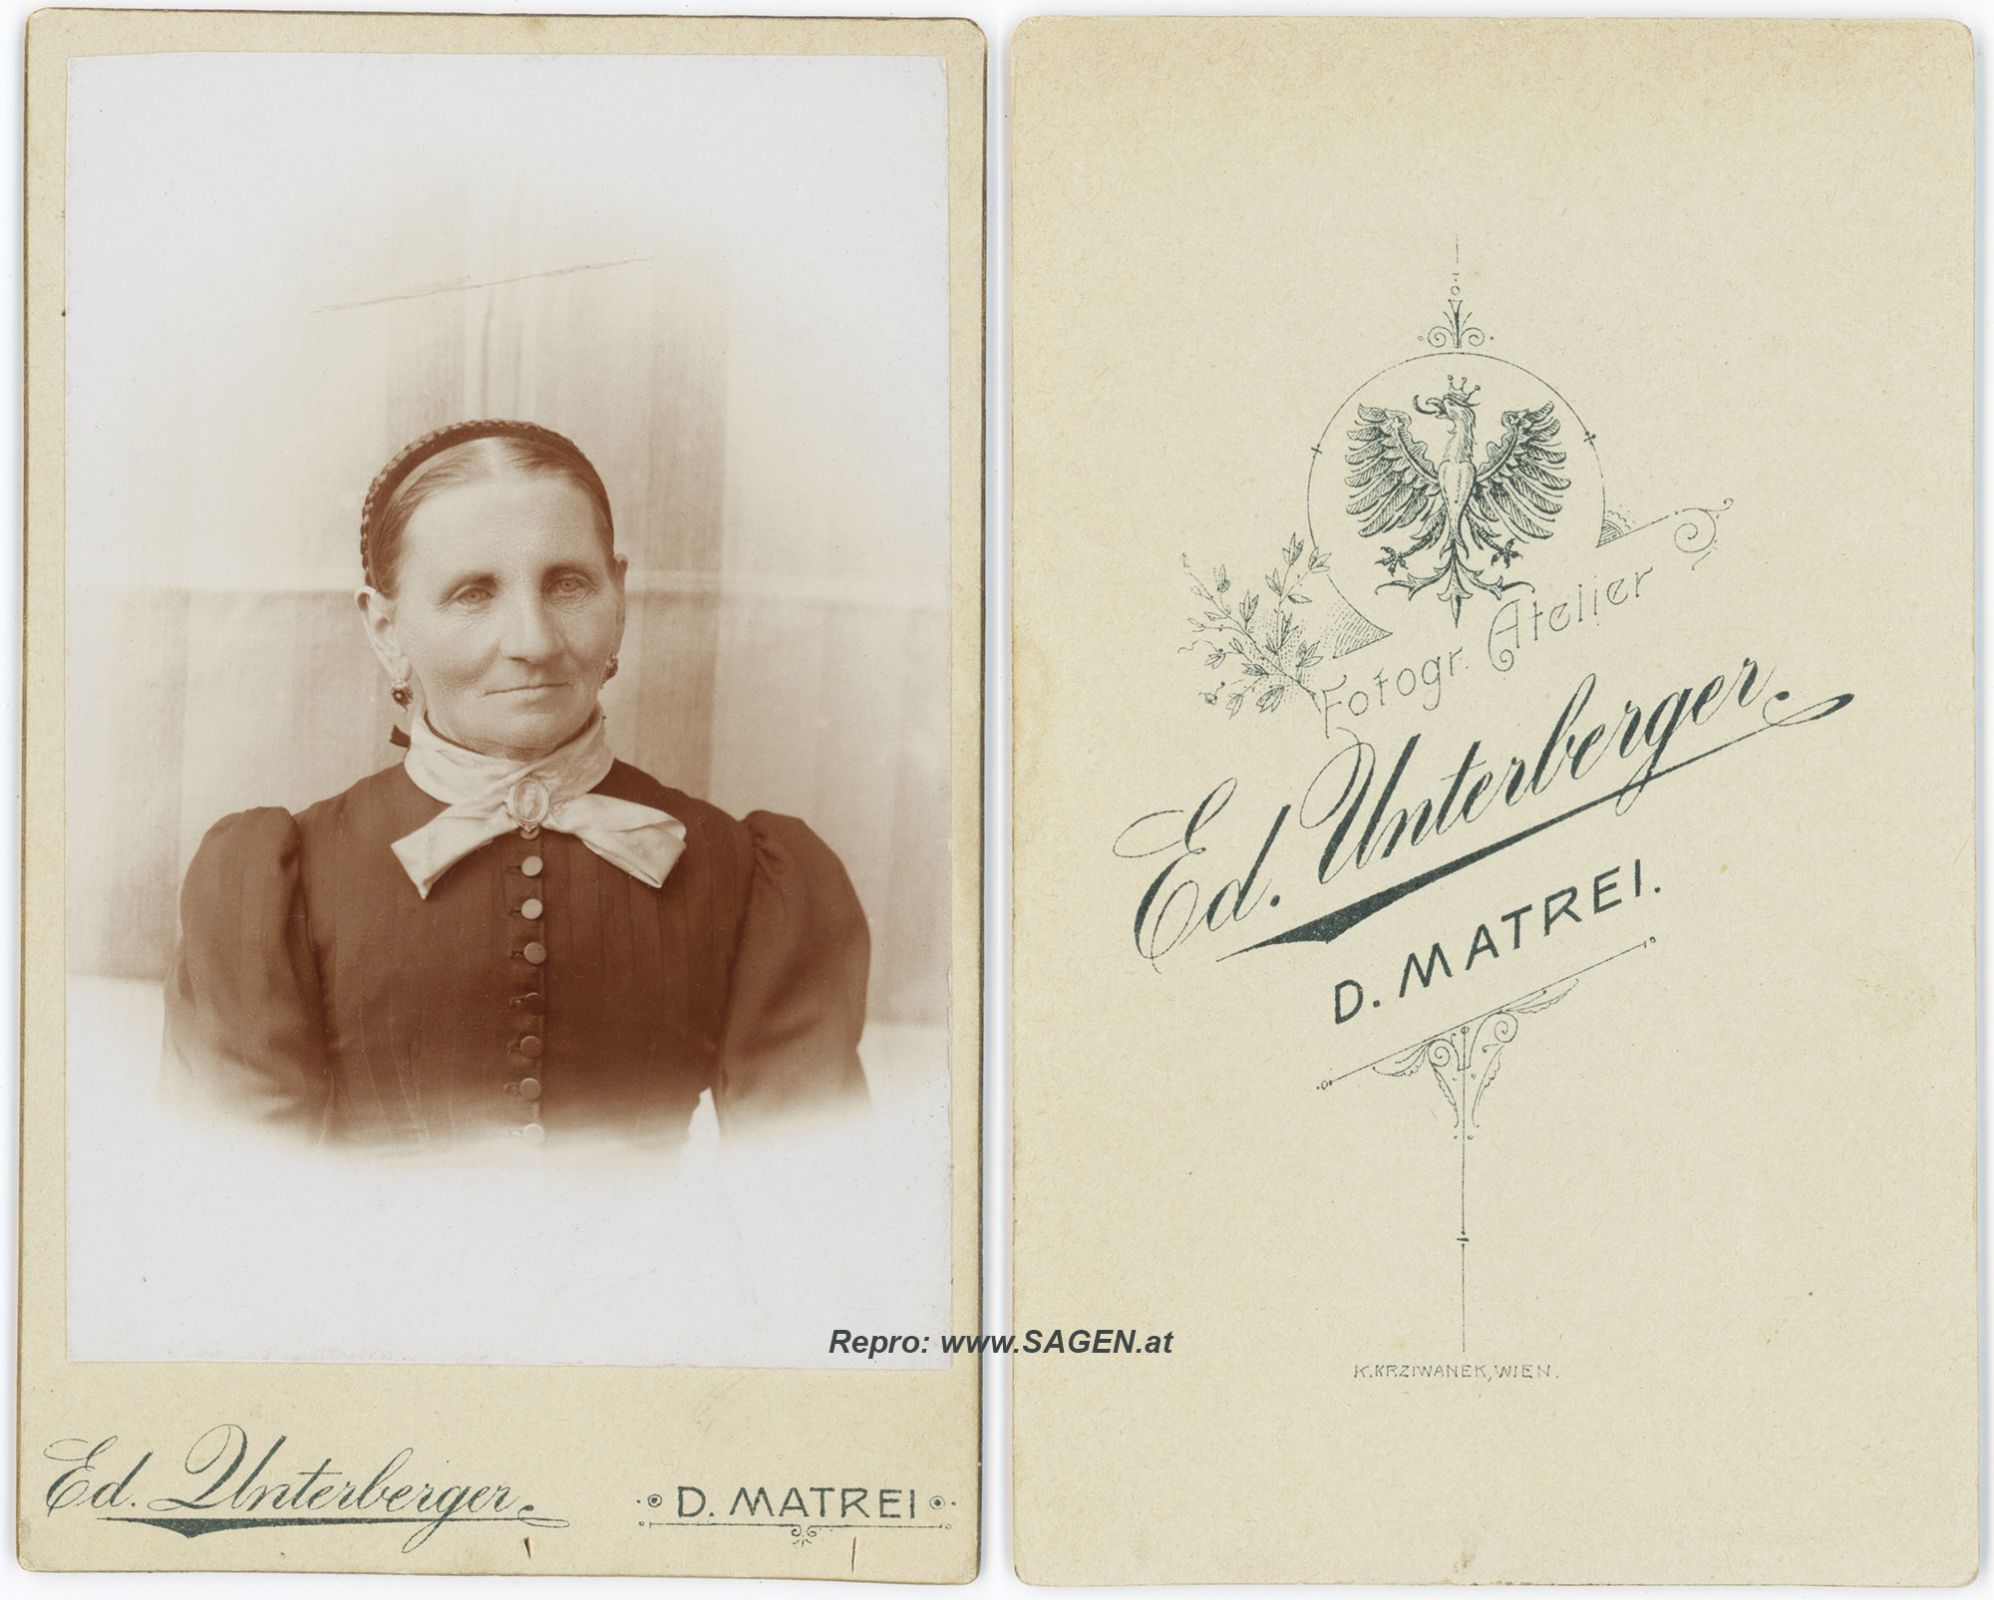 Ed. Unterberger.
D. MATREI
Fotogr. Atelier
Ed. Unterberger.
D. MATREI.
K. KRZIWANEK, WIEN.
Repro: www.SAGEN.at